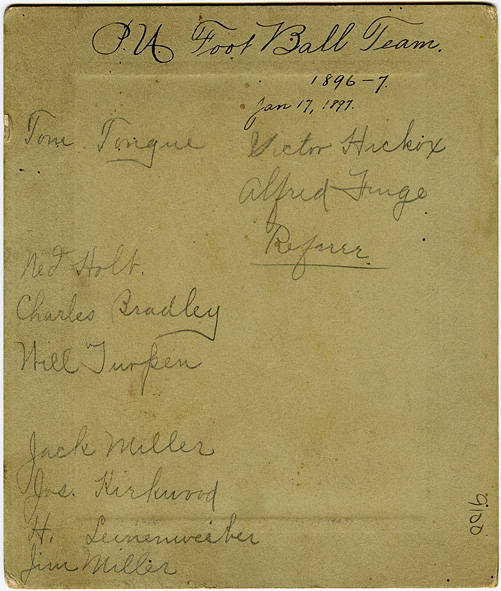 P.U. Foot Ball Team.
1896-7.
Jan 17, 1897.
Tom Tongue
Victor Hickox
Alfred Finge
Referee.
Ned Holt.
Charles Bradley
Will Turpen
Jack Miller
Jos. Kirkwood
H. Leinenweiber
Jim Miller
9100